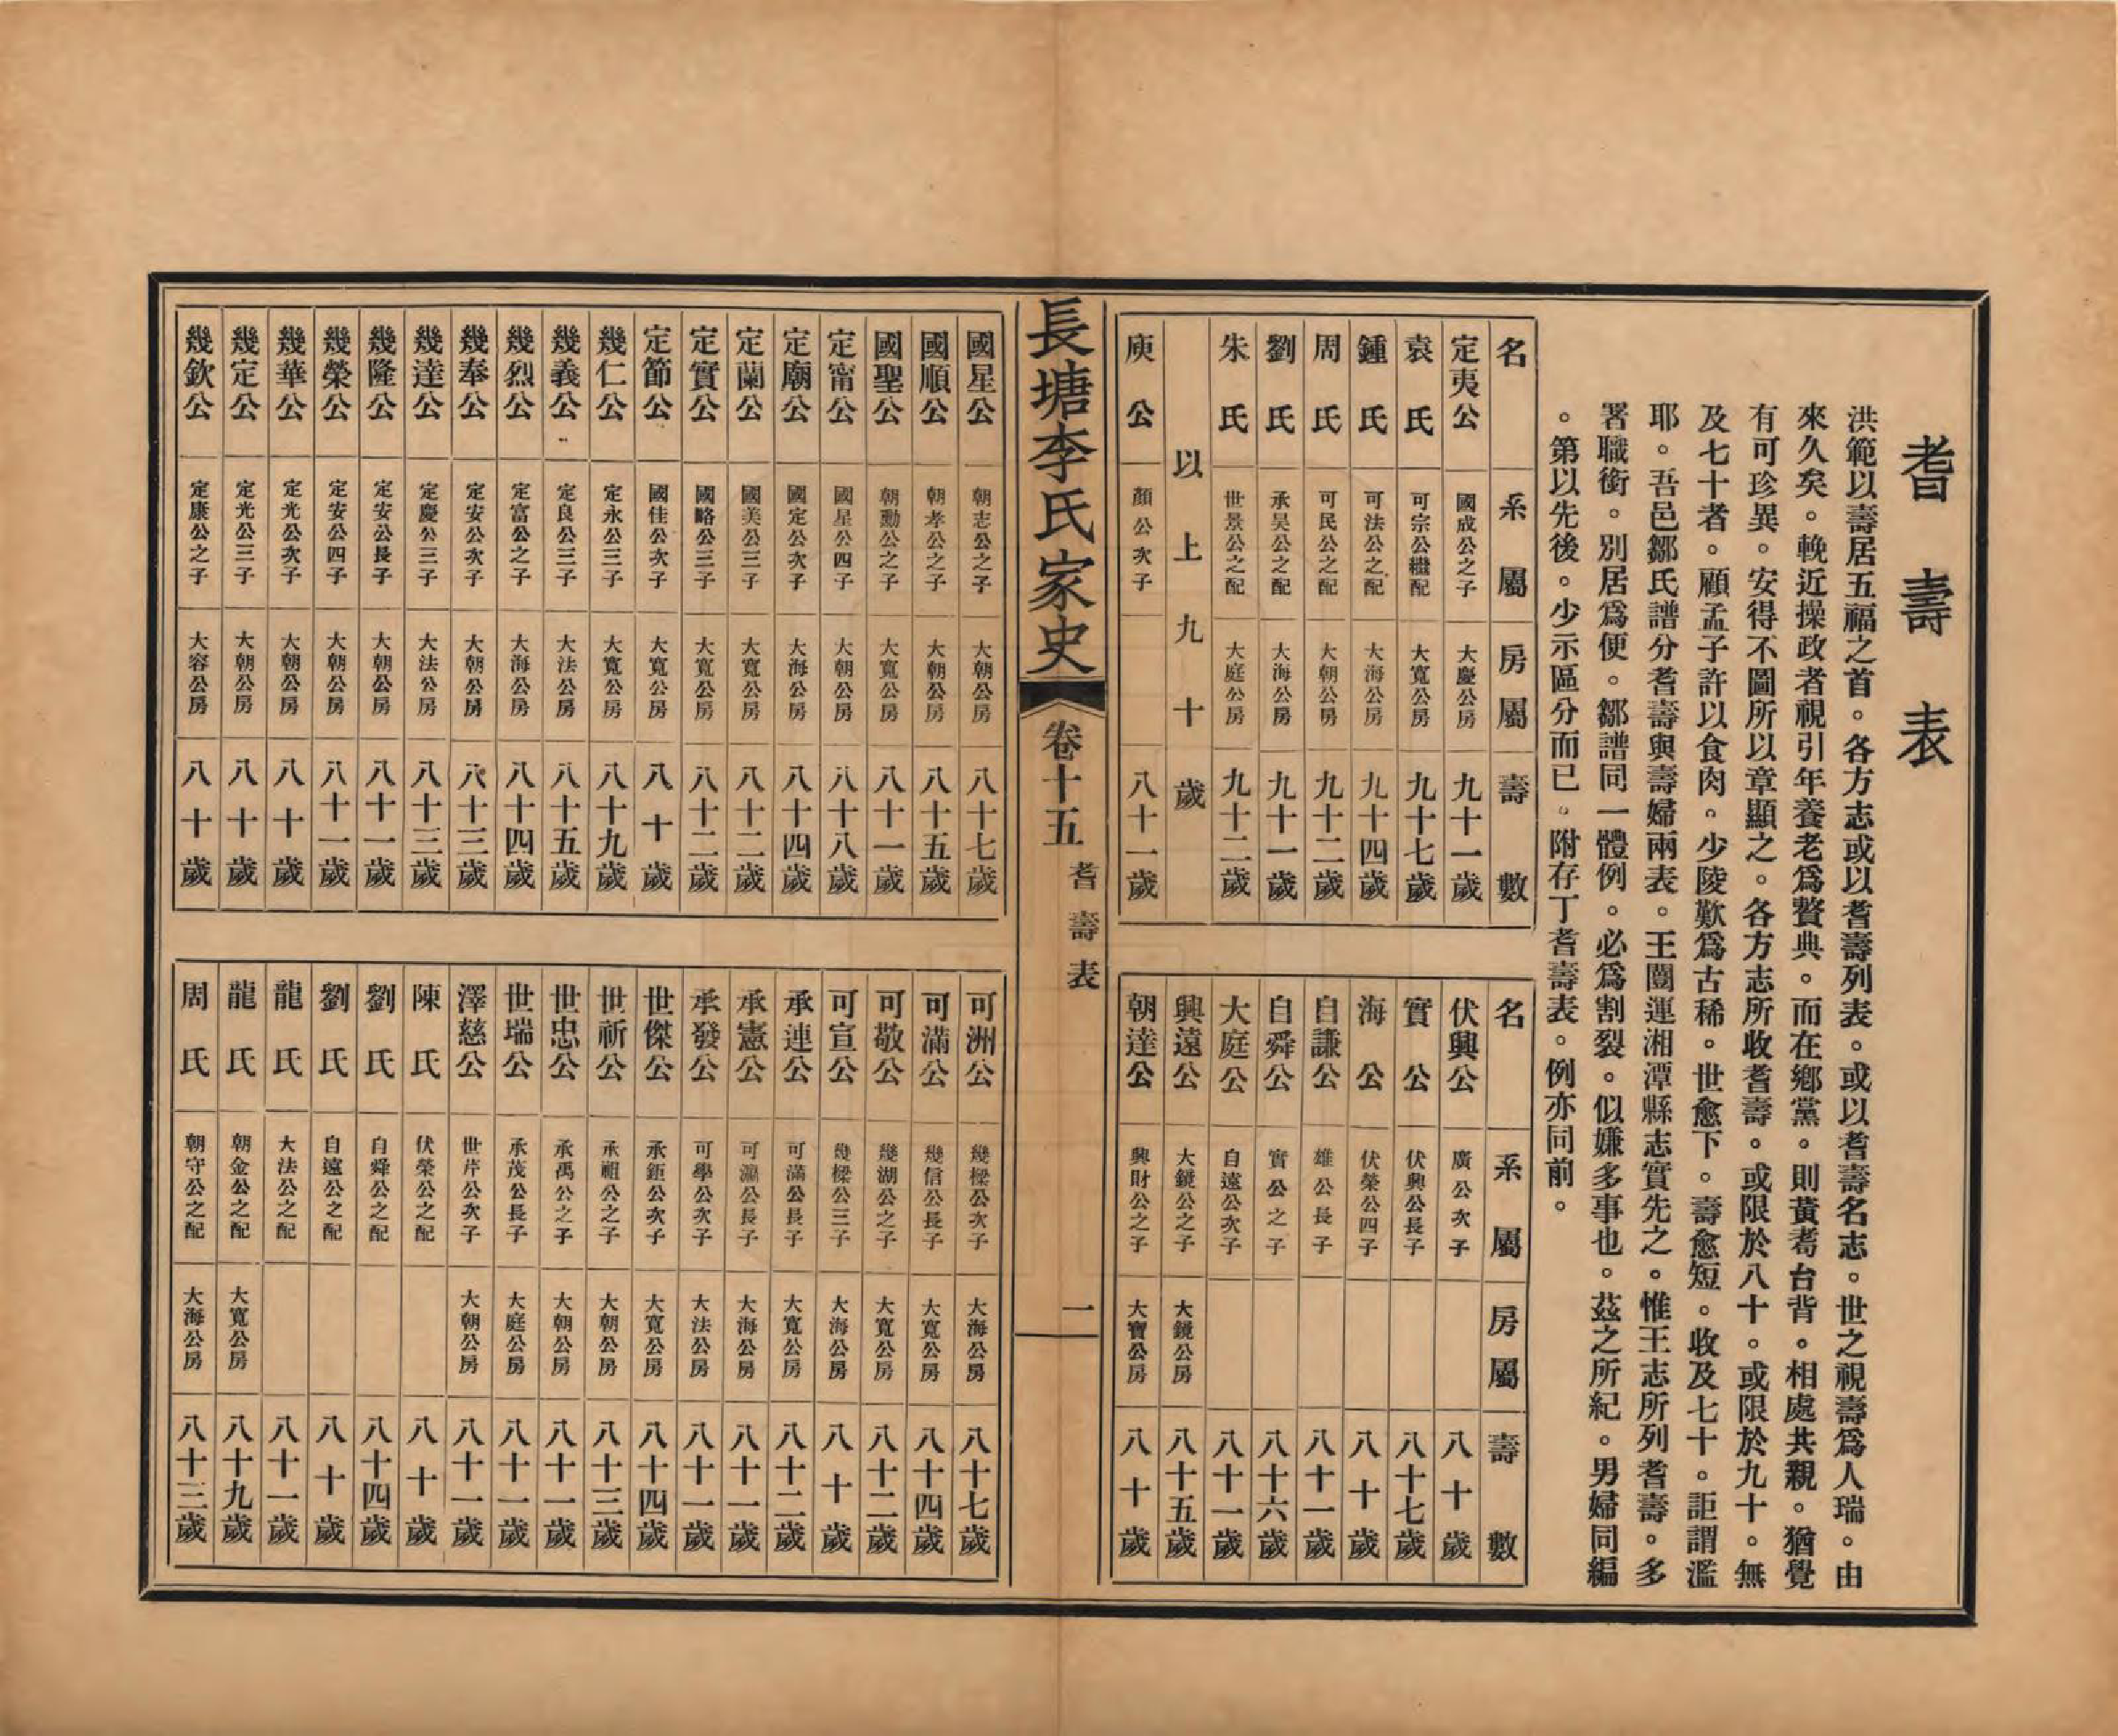 耆壽表
洪範以壽居五福之首。各方志或以耆壽列表。或以耆壽名志。世之視壽爲人瑞。由
來久矣。輓近操政者視引年養老爲贅典。而在鄕黨。則黃耇台背。相處共親。猶覺
有可珍異。安得不圖所以章顯之。各方志所收耆壽。或限於八十。或限於九十。無
及七十者。顧孟子許以食肉。少陵歎爲古稀。世愈下。壽愈短。收及七十。詎謂濫
耶。吾邑鄒氏譜分耆壽與壽婦兩表。王闓運湘潭縣志實先之。惟王志所列耆壽。多
署職銜。別居爲便。鄒譜同一體例。必爲割裂。似嫌多事也。茲之所紀。男婦同編
。第以先後。少示區分而已。附存丁耆壽表。例亦同前。
名 系屬 房屬 壽數
定夷公 國成公之子 大慶公房 九十一歲
袁氏 可宗公繼配 大寬公房 九十七歲
鍾氏 可法公之配 大海公房 九十四歲
周氏 可民公之配 大朝公房 九十二歲
劉氏 承吴公之配 大海公房 九十一歲
朱氏 世景公之配 大庭公房 九十二歲
以上九十歲
庾公 顏公次子 八十一歲
名 系屬 房屬 壽數
伏興公 廣公次子 八十歲
實公 伏興公長子 八十七歲
海公 伏榮公四子 八十歲
自謙公 雄公長子 八十一歲
自舜公 實公之子 八十六歲
大庭公 自遠公次子 八十一歲
興遠公 大鏡公之子 大鏡公房 八十五歲
朝達公 興財公之子 大寶公房 八十歲
長塘李氏家史
卷十五
耆壽表
一
國星公 朝志公之子 大朝公房 八十七歲
國順公 朝孝公之子 大朝公房 八十五歲
國聖公 朝勳公之子 大寬公房 八十一歲
定甯公 國星公四子 大朝公房 八十八歲
定廟公 國定公次子 大海公房 八十四歲
定蘭公 國美公三子 大寬公房 八十二歲
定實公 國略公三子 大寬公房 八十二歲
定節公 國佳公次子 大寬公房 八十歲
幾仁公 定永公三子 大寬公房 八十九歲
幾義公 定良公三子 大法公房 八十五歲
幾烈公 定富公之子 大海公房 八十四歲
幾奉公 定安公次子 大朝公房 八十三歲
幾達公 定慶公三子 大法公房 八十三歲
幾隆公 定安公長子 大朝公房 八十一歲
幾榮公 定安公四子 大朝公房 八十一歲
幾華公 定光公次子 大朝公房 八十歲
幾定公 定光公三子 大朝公房 八十歲
幾欽公 定康公之子 大容公房 八十歲
可洲公 幾樑公次子 大海公房 八十七歲
可滿公 幾信公長子 大寬公房 八十四歲
可敬公 幾湖公之子 大寬公房 八十二歲
可宣公 幾樑公三子 大海公房 八十歲
承連公 可滿公長子 大寬公房 八十二歲
承憲公 可瀛公長子 大海公房 八十一歲
承發公 可學公次子 大法公房 八十一歲
世傑公 承鉅公次子 大寬公房 八十四歲
世祈公 承祖公之子 大朝公房 八十三歲
世忠公 承禹公之子 大朝公房 八十一歲
世瑞公 承茂公長子 大庭公房 八十一歲
澤慈公 世芹公次子 大朝公房 八十一歲
陳氏 伏榮公之配 八十歲
劉氏 自舜公之配 八十四歲
劉氏 自遠公之配 八十歲
龍氏 大法公之配 八十一歲
龍氏 朝金公之配 大寬公房 八十九歲
周氏 朝守公之配 大海公房 八十三歲